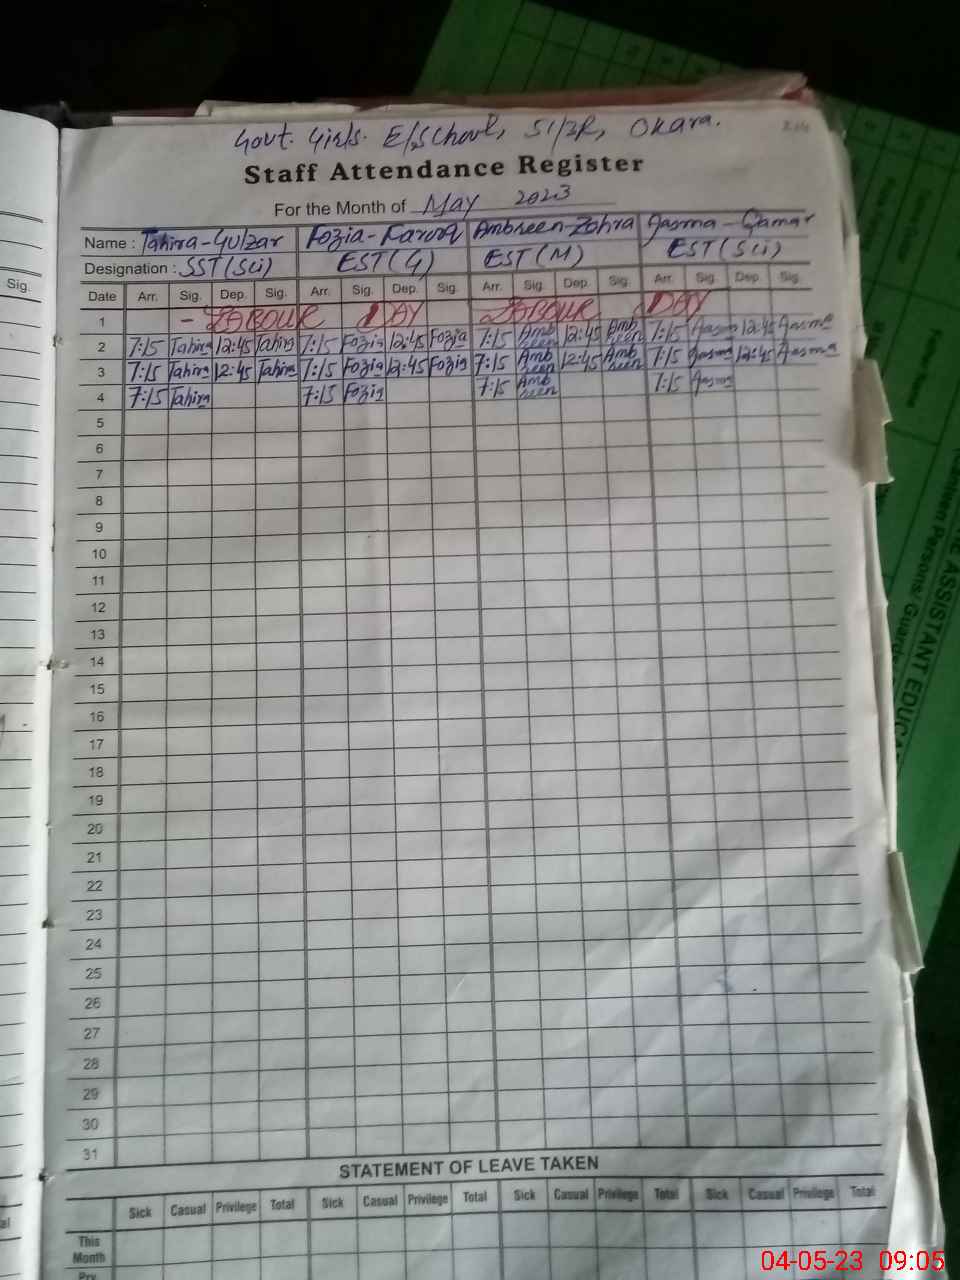 Govt. Girls. E/School, 51/2R, Okara.
Staff Attendance Register
For the Month of May 2023
Name : Tahira-Gulzar Fozia-Farooq Ambreen-Zohra Aasma-Qamar
Designation : SST(Sci) EST(G) EST(M) EST(Sci)
Sig.
Date Arr. Sig. Dep. Sig. Arr. Sig. Dep. Sig. Arr. Sig. Dep. Sig. Arr. Sig. Dep. Sig.
1 - LABOUR DAY LABOUR DAY
2 7:15 Tahira 12:45 Tahira 7:15 Fozia 12:45 Fozia 7:15 Ambreen 12:45 Ambreen 7:15 Aasma 12:45 Aasma
3 7:15 Tahira 12:45 Tahira 7:15 Fozia 12:45 Fozia 7:15 Ambreen 12:45 Ambreen 7:15 Aasma 12:45 Aasma
4 7:15 Tahira 7:15 Fozia 7:15 Ambreen 7:15 Aasma
5
6
7
8
9
10
11
12
13
14
15
16
17
18
19
20
21
22
23
24
25
26
27
28
29
30
31
STATEMENT OF LEAVE TAKEN
Sick Casual Privilege Total Sick Casual Privilege Total Sick Casual Privilege Total Sick Casual Privilege Total
This
Month
ASSISTANT EDUCA
Persons/ Guard
04-05-23 09:05